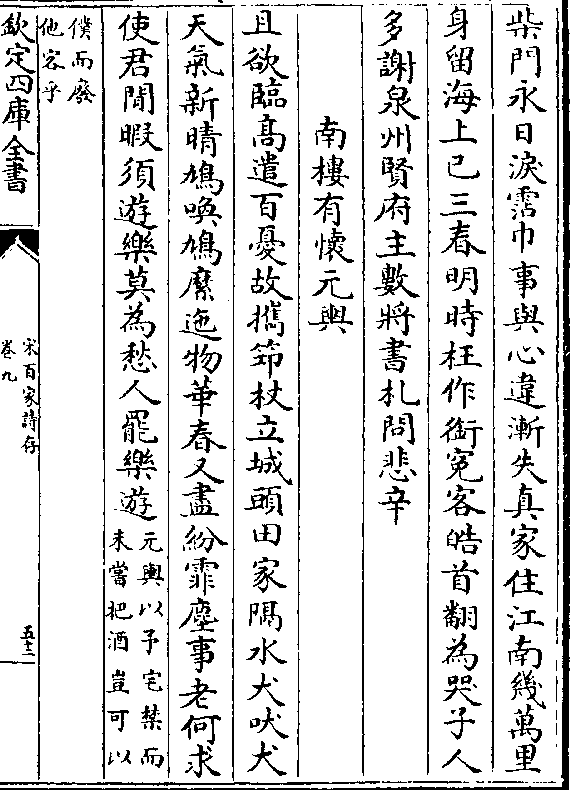 柴門永日淚霑巾事與心違漸失真家住江南幾萬里
身留海上已三春明時枉作銜冤客皓首翻為哭子人
多謝泉州賢府主數將書札問悲辛
南樓有懷元輿
且欲臨高遣百憂故攜筇杖立城頭田家隔水犬吠犬
天氣新晴鳩喚鳩縻迆物華春又盡紛霏塵事老何求
使君閒暇須遊樂莫為愁人罷樂遊元輿以予宅禁而
未嘗把酒豈可以
僕而廢
他客乎
欽定四庫全書
宋百家詩存
卷九
五十二